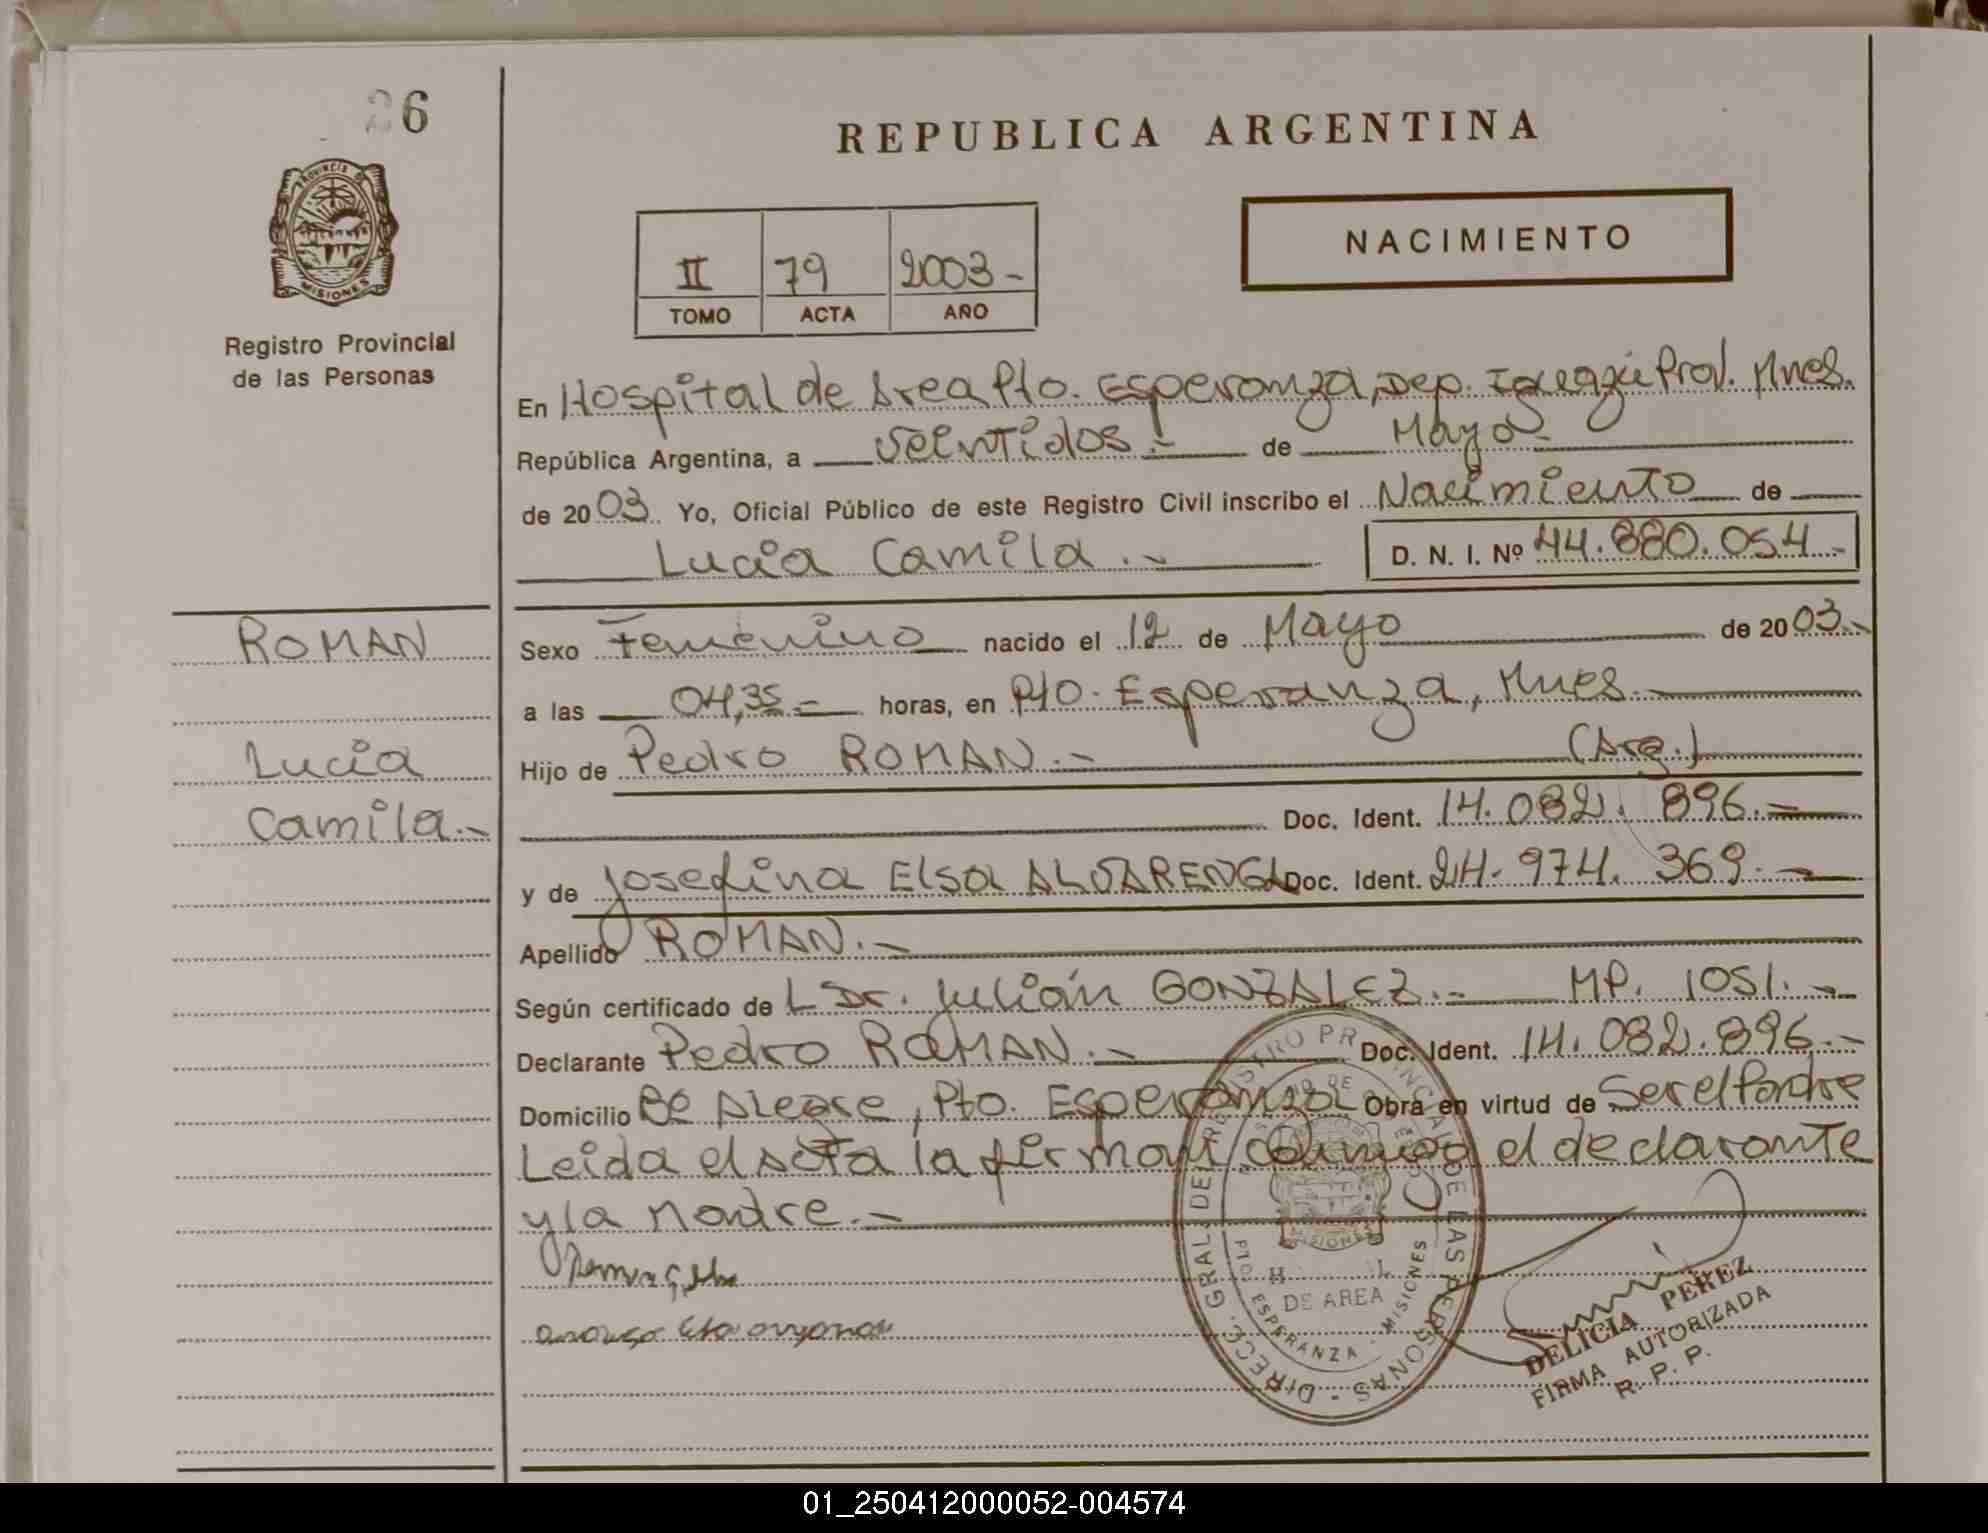 26
REPUBLICA ARGENTINA
PROVINCIA DE MISIONES
NACIMIENTO
II 79 2003-
TOMO ACTA AÑO
Registro Provincial
de las Personas
En Hospital de Area Pto. Esperanza, Dep. Iguazú Prov. Mnes.
República Argentina, a Veintidos.- de Mayo-
de 2003. Yo, Oficial Público de este Registro Civil inscribo el Nacimiento de
Lucia Camila.- D. N. I. Nº 44.880.054-
ROMAN
Sexo Femenino nacido el 12 de Mayo de 2003.-
a las 04,35.- horas, en Pto. Esperanza, Mnes.-
Lucia
Hijo de Pedro ROMAN.- (Arg.)
Camila.-
Doc. Ident. 14.082.896.-
y de Josefina Elsa ALVARENGA Doc. Ident. 24.974.369.-
Apellido ROMAN.-
Según certificado de L Dr. Julián GONZALEZ.- MP. 1051.-
Declarante Pedro ROMAN.- Doc. Ident. 14.082.896.-
Domicilio Bº Alegre, Pto. Esperanza Obra en virtud de Ser el Padre
Leida el Acta la firman conmigo el declarante
y la Madre.-
DIRECC. GRAL. DEL REGISTRO PROVINCIAL DE LAS PERSONAS
MISIONES
HOSPITAL
DE AREA
PTO. ESPERANZA - MISIONES
DELICIA PEREZ
FIRMA AUTORIZADA
R. P. P.
01_250412000052-004574